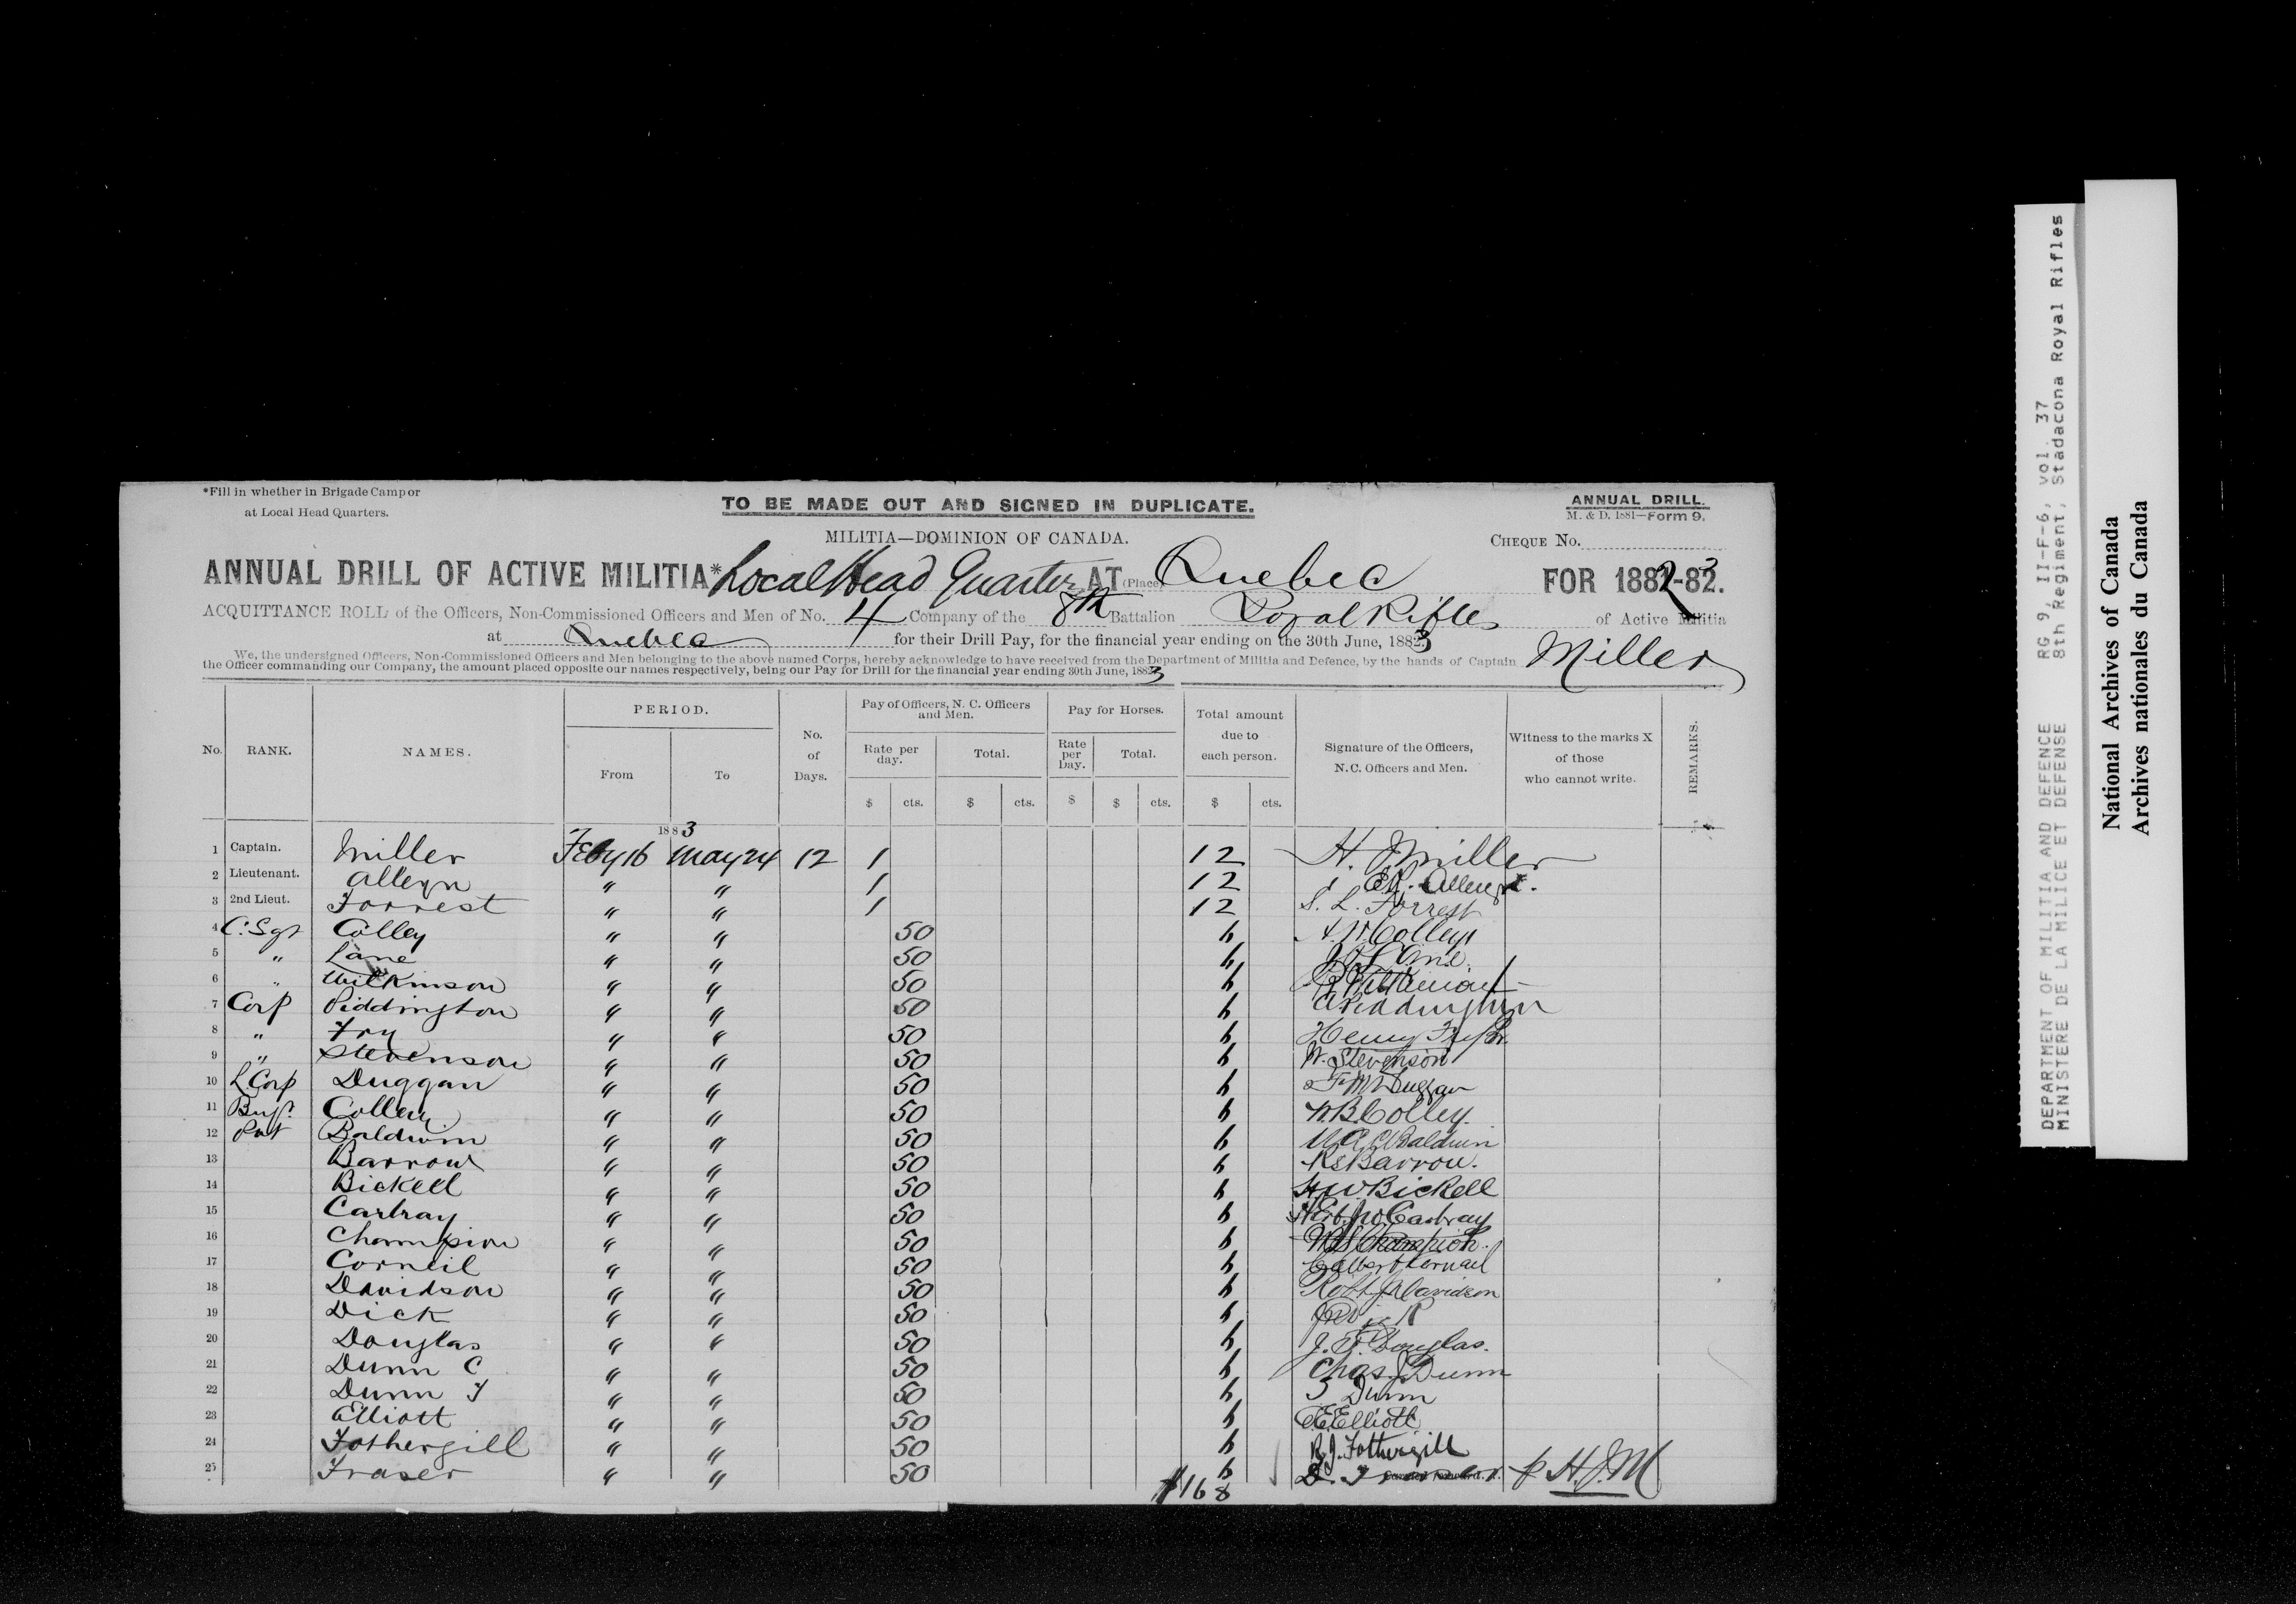 *Fill in whether in Brigade Camp or
at Local Head Quarters.
TO BE MADE OUT AND SIGNED IN DUPLICATE.
ANNUAL DRILL.
M. & D. 1881—Form 9.
MILITIA—DOMINION OF CANADA.
CHEQUE No.
ANNUAL DRILL OF ACTIVE MILITIA* Local Head Quarters AT (Place) Quebec FOR 1882-83.
ACQUITTANCE ROLL of the Officers, Non-Commissioned Officers and Men of No. 4 Company of the 8th Battalion Royal Rifles of Active Militia
at Quebec for their Drill Pay, for the financial year ending on the 30th June, 1883
We, the undersigned Officers, Non-Commissioned Officers and Men belonging to the above named Corps, hereby acknowledge to have received from the Department of Militia and Defence, by the hands of Captain Miller
the Officer commanding our Company, the amount placed opposite our names respectively, being our Pay for Drill for the financial year ending 30th June, 1883
No. RANK. NAMES. PERIOD. From To No. of Days. Pay of Officers, N. C. Officers and Men. Rate per day. Total. Pay for Horses. Rate per Day. Total. Total amount due to each person. Signature of the Officers, N.C. Officers and Men. Witness to the marks X of those who cannot write. REMARKS.
$ cts. $ cts. $ $ cts. $ cts.
1883
1 Captain. Miller Feby 16 May 24 12 1 12 H. J. Miller
2 Lieutenant. Alleyn " " 1 12 Alleyn
3 2nd Lieut. Forrest " " 1 12 S. L. Forrest
4 C. Sgt Colley " " 50 6 Colley
5 " Lane " " 50 6 Lane
6 " Wilkinson " " 50 6 Wilkinson
7 Corp Piddington " " 50 6 A Piddington
8 " Fry " " 50 6 Henry Fry Jr.
9 " Stevenson " " 50 6 W. Stevenson
10 L Corp Duggan " " 50 6 Duggan
11 Bug. Colley " " 50 6 W.B. Colley.
12 Pvt Baldwin " " 50 6 Baldwin
13 Barrow " " 50 6 Barrow.
14 Bickell " " 50 6 H.W. Bickell
15 Carbray " " 50 6 Carbray
16 Champion " " 50 6 Champion.
17 Corneil " " 50 6 Corneil
18 Davidson " " 50 6 Robt J. Davidson
19 Dick " " 50 6
20 Douglas " " 50 6 J. F. Douglas.
21 Dunn C " " 50 6 Chas. J Dunn
22 Dunn T " " 50 6 T Dunn
23 Elliott " " 50 6 Elliott
24 Fothergill " " 50 6 R.J. Fothergill
25 Fraser " " 50 6 Carried forward p H.J.M
$168
DEPARTMENT OF MILITIA AND DEFENCE RG 9, II-F-6, vol. 37
MINISTERE DE LA MILICE ET DEFENSE 8th Regiment, Stadacona Royal Rifles
National Archives of Canada
Archives nationales du Canada